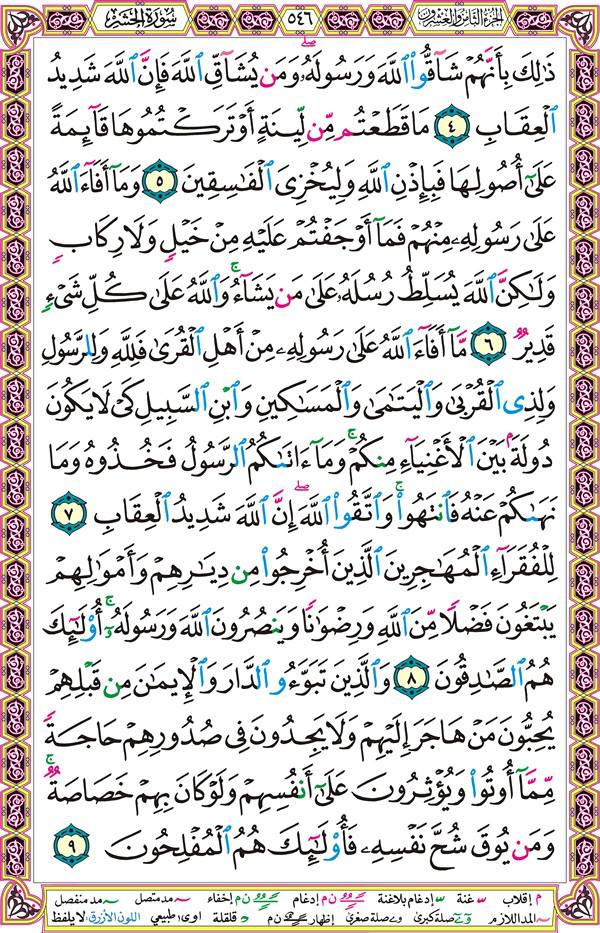 الجزء الثامن والعشرون ٥٤٦ سورة الحشر
ذَٰلِكَ بِأَنَّهُمْ شَآقُّوا۟ ٱللَّهَ وَرَسُولَهُۥ وَمَن يُشَآقِّ ٱللَّهَ فَإِنَّ ٱللَّهَ شَدِيدُ
ٱلْعِقَابِ ٤ مَا قَطَعْتُم مِّن لِّينَةٍ أَوْ تَرَكْتُمُوهَا قَآئِمَةً
عَلَىٰٓ أُصُولِهَا فَبِإِذْنِ ٱللَّهِ وَلِيُخْزِىَ ٱلْفَـٰسِقِينَ ٥ وَمَآ أَفَآءَ ٱللَّهُ
عَلَىٰ رَسُولِهِۦ مِنْهُمْ فَمَآ أَوْجَفْتُمْ عَلَيْهِ مِنْ خَيْلٍ وَلَا رِكَابٍ
وَلَـٰكِنَّ ٱللَّهَ يُسَلِّطُ رُسُلَهُۥ عَلَىٰ مَن يَشَآءُ ۚ وَٱللَّهُ عَلَىٰ كُلِّ شَىْءٍ
قَدِيرٌ ٦ مَّآ أَفَآءَ ٱللَّهُ عَلَىٰ رَسُولِهِۦ مِنْ أَهْلِ ٱلْقُرَىٰ فَلِلَّهِ وَلِلرَّسُولِ
وَلِذِى ٱلْقُرْبَىٰ وَٱلْيَتَـٰمَىٰ وَٱلْمَسَـٰكِينِ وَٱبْنِ ٱلسَّبِيلِ كَىْ لَا يَكُونَ
دُولَةًۢ بَيْنَ ٱلْأَغْنِيَآءِ مِنكُمْ ۚ وَمَآ ءَاتَىٰكُمُ ٱلرَّسُولُ فَخُذُوهُ وَمَا
نَهَىٰكُمْ عَنْهُ فَٱنتَهُوا۟ ۚ وَٱتَّقُوا۟ ٱللَّهَ ۖ إِنَّ ٱللَّهَ شَدِيدُ ٱلْعِقَابِ ٧
لِلْفُقَرَآءِ ٱلْمُهَـٰجِرِينَ ٱلَّذِينَ أُخْرِجُوا۟ مِن دِيَـٰرِهِمْ وَأَمْوَٰلِهِمْ
يَبْتَغُونَ فَضْلًا مِّنَ ٱللَّهِ وَرِضْوَٰنًا وَيَنصُرُونَ ٱللَّهَ وَرَسُولَهُۥٓ ۚ أُو۟لَـٰٓئِكَ
هُمُ ٱلصَّـٰدِقُونَ ٨ وَٱلَّذِينَ تَبَوَّءُو ٱلدَّارَ وَٱلْإِيمَـٰنَ مِن قَبْلِهِمْ
يُحِبُّونَ مَنْ هَاجَرَ إِلَيْهِمْ وَلَا يَجِدُونَ فِى صُدُورِهِمْ حَاجَةً
مِّمَّآ أُوتُوا۟ وَيُؤْثِرُونَ عَلَىٰٓ أَنفُسِهِمْ وَلَوْ كَانَ بِهِمْ خَصَاصَةٌ ۚ
وَمَن يُوقَ شُحَّ نَفْسِهِۦ فَأُو۟لَـٰٓئِكَ هُمُ ٱلْمُفْلِحُونَ ٩
م إقلاب غنة إدغام بلاغنة ن م إدغام ن م إخفاء مد متصل مد منفصل
المد اللازم صلة كبرى صلة صغرى إظهار ن م قلقلة اوى طبيعي اللون الأزرق: لا يلفظ